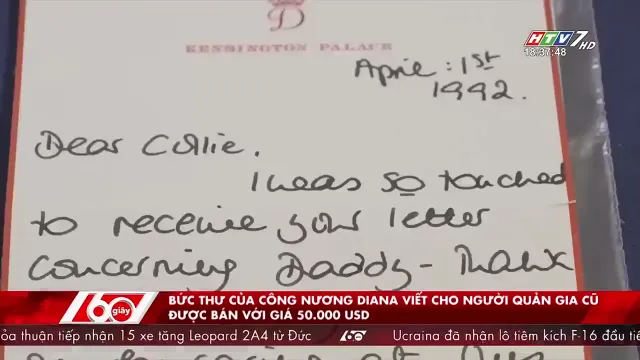 D
KENSINGTON PALACE
HTV7 HD
18:37:48
April: 1st
1992.
Dear Collie.
I was so touched
to receive your letter
concerning Daddy - Thank
60 giây
BỨC THƯ CỦA CÔNG NƯƠNG DIANA VIẾT CHO NGƯỜI QUẢN GIA CŨ
ĐƯỢC BÁN VỚI GIÁ 50.000 USD
ỏa thuận tiếp nhận 15 xe tăng Leopard 2A4 từ Đức
Ucraina đã nhận lô tiêm kích F-16 đầu ti